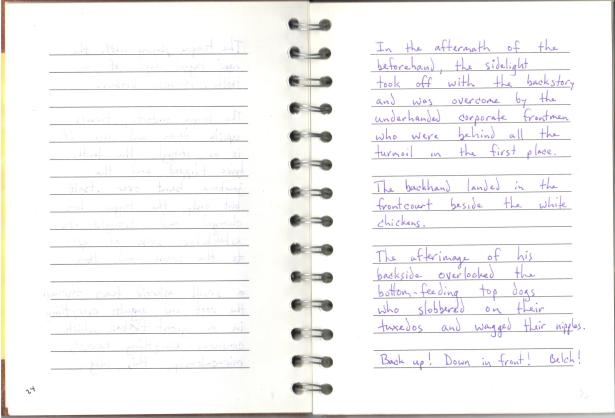 24
In the aftermath of the
beforehand, the sidelight
took off with the backstory
and was overcome by the
underhanded corporate frontmen
who were behind all the
turmoil in the first place.
The backhand landed in the
frontcourt beside the white
chickens.
The afterimage of his
backside overlooked the
bottom-feeding top dogs
who slobbered on their
tuxedos and wagged their nipples.
Back up! Down in front! Belch!